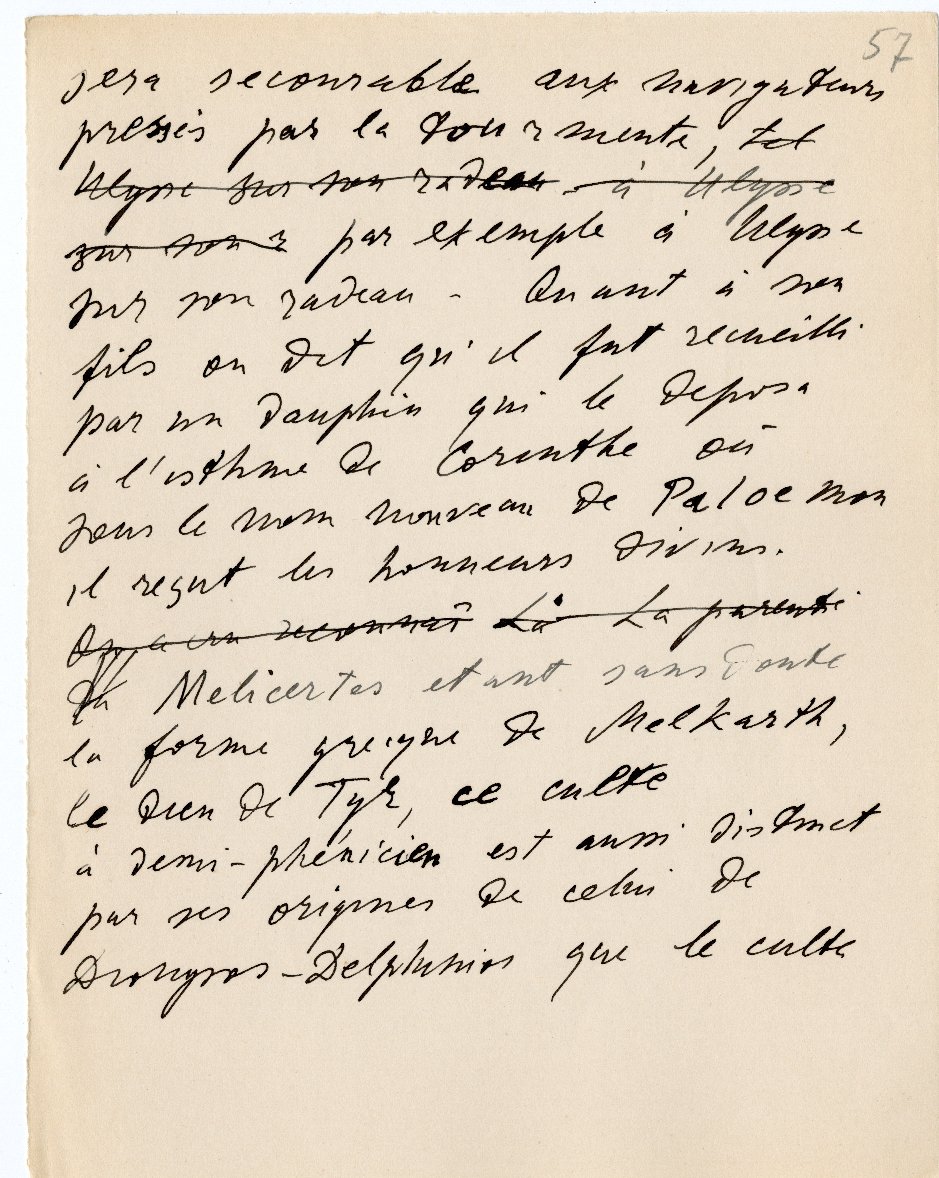 57
sera secourable aux navigateurs
pressés par la tourmente, tel
Ulysse sur son radeau - à Ulysse
sur son r par exemple à Ulysse
sur son radeau - Quant à son
fils on dit qu'il fut recueilli
par un dauphin qui le deposa
à l'isthme de Corinthe où
sous le nom nouveau de Paloemon
il reçut les honneurs divins.
On a cru reconnaî Là La parenté
Melicertes etant sans doute
la forme grecque de Melkarth,
le dieu de Tyr, ce culte
à demi-phénicien est aussi distinct
par ses origines de celui de
Dionysos-Delphinios que le culte